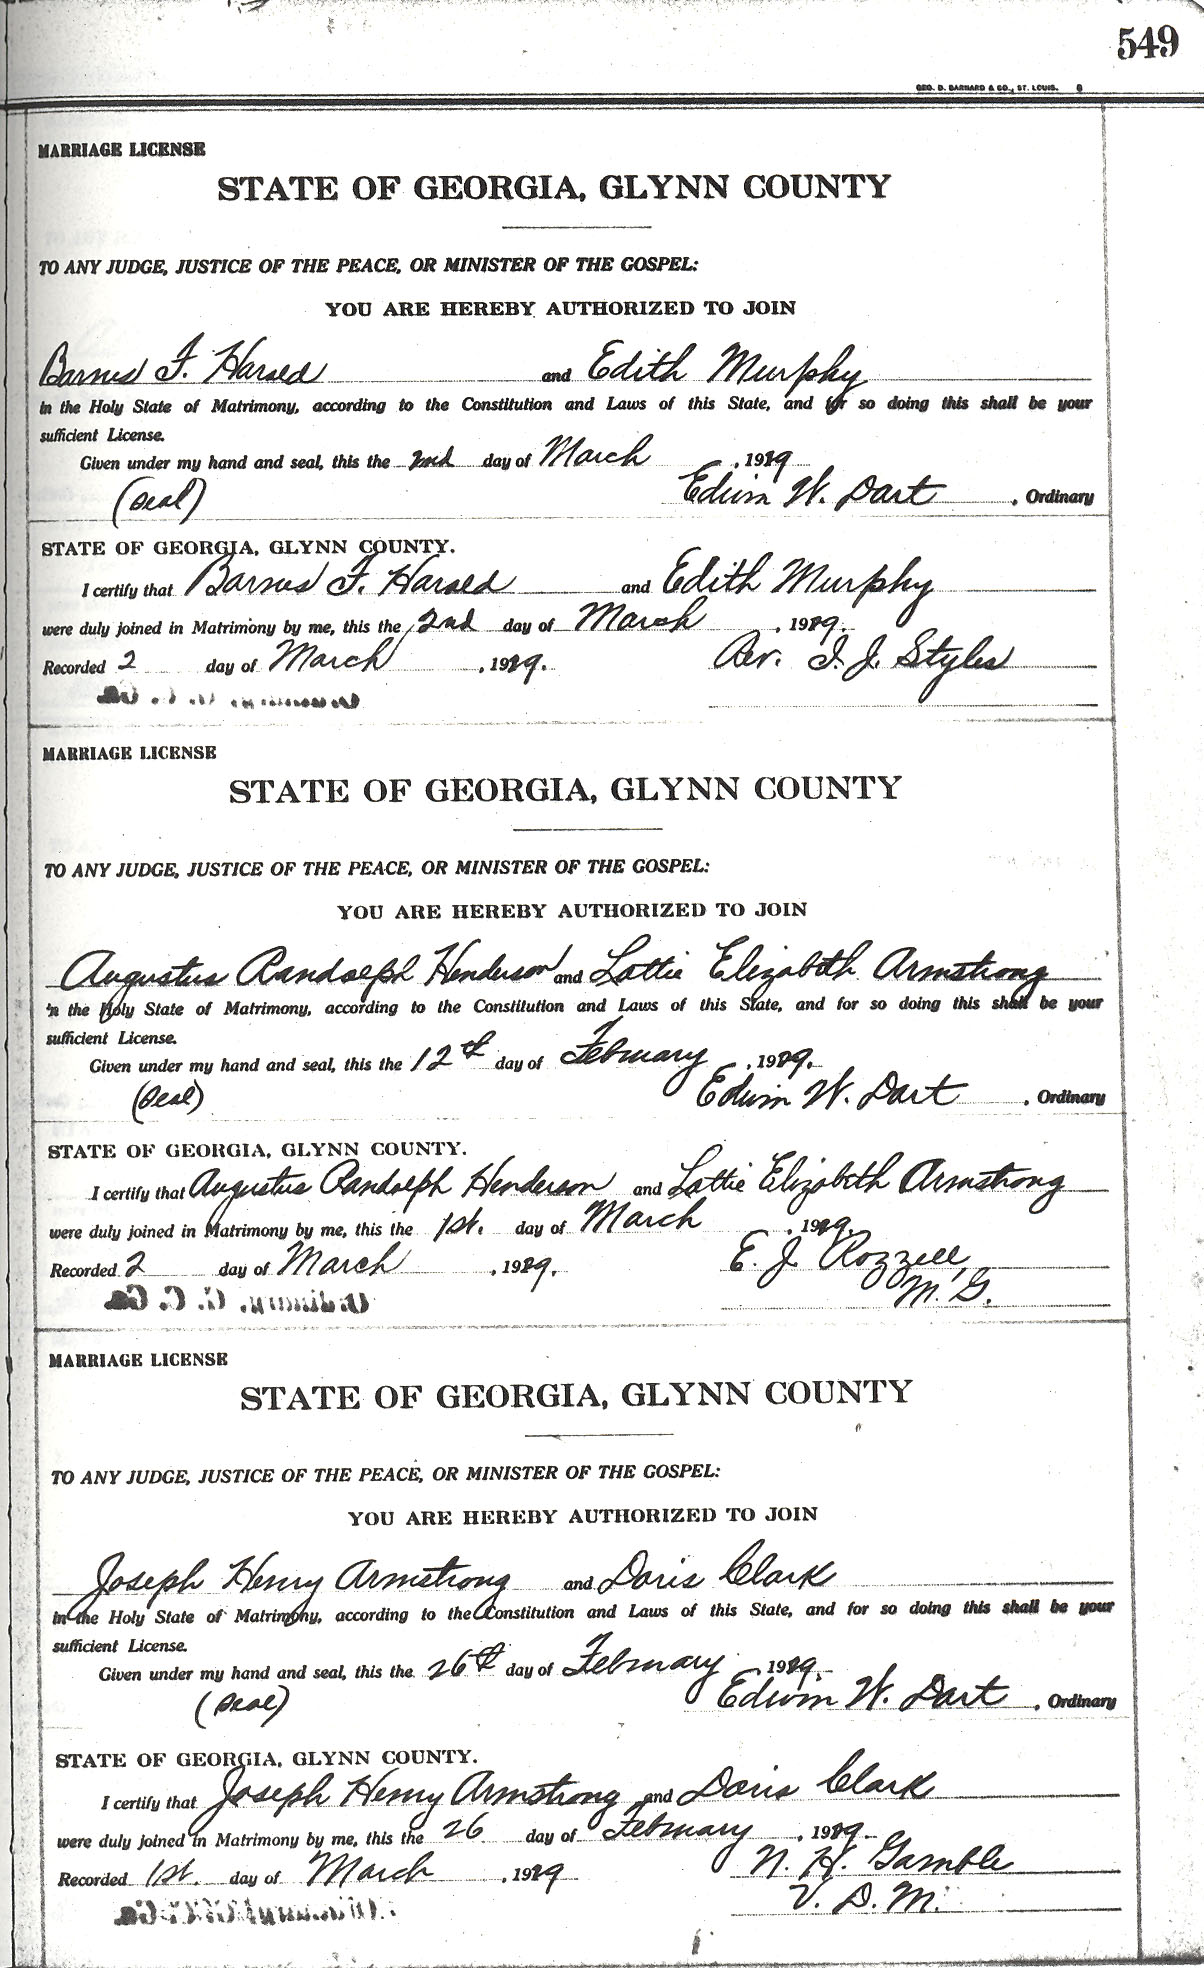 549
GEO. D. BARNARD & CO., ST. LOUIS. 8
MARRIAGE LICENSE
STATE OF GEORGIA, GLYNN COUNTY
TO ANY JUDGE, JUSTICE OF THE PEACE, OR MINISTER OF THE GOSPEL:
YOU ARE HEREBY AUTHORIZED TO JOIN
Barnes F. Harold and Edith Murphy
in the Holy State of Matrimony, according to the Constitution and Laws of this State, and for so doing this shall be your
sufficient License.
Given under my hand and seal, this the 2nd day of March , 1919
(Seal) Edwin W. Dart , Ordinary
STATE OF GEORGIA, GLYNN COUNTY.
I certify that Barnes F. Harold and Edith Murphy
were duly joined in Matrimony by me, this the 2nd day of March , 1919.
Recorded 2 day of March , 1919. Rev. I. J. Styles
MARRIAGE LICENSE
STATE OF GEORGIA, GLYNN COUNTY
TO ANY JUDGE, JUSTICE OF THE PEACE, OR MINISTER OF THE GOSPEL:
YOU ARE HEREBY AUTHORIZED TO JOIN
Augustus Randolph Henderson and Lottie Elizabeth Armstrong
in the Holy State of Matrimony, according to the Constitution and Laws of this State, and for so doing this shall be your
sufficient License.
Given under my hand and seal, this the 12th day of February , 1919.
(Seal) Edwin W. Dart , Ordinary
STATE OF GEORGIA, GLYNN COUNTY.
I certify that Augustus Randolph Henderson and Lottie Elizabeth Armstrong
were duly joined in Matrimony by me, this the 1st. day of March , 1919.
Recorded 2 day of March , 1919. E. J. Rozzell,
M. G.
Ordinary, G. C. Ga.
MARRIAGE LICENSE
STATE OF GEORGIA, GLYNN COUNTY
TO ANY JUDGE, JUSTICE OF THE PEACE, OR MINISTER OF THE GOSPEL:
YOU ARE HEREBY AUTHORIZED TO JOIN
Joseph Henry Armstrong and Doris Clark
in the Holy State of Matrimony, according to the Constitution and Laws of this State, and for so doing this shall be your
sufficient License.
Given under my hand and seal, this the 26th day of February , 1919.
(Seal) Edwin W. Dart , Ordinary
STATE OF GEORGIA, GLYNN COUNTY.
I certify that Joseph Henry Armstrong and Doris Clark
were duly joined in Matrimony by me, this the 26 day of February , 1919.
Recorded 1st. day of March , 1919 N. H. Gamble
V. D. M.